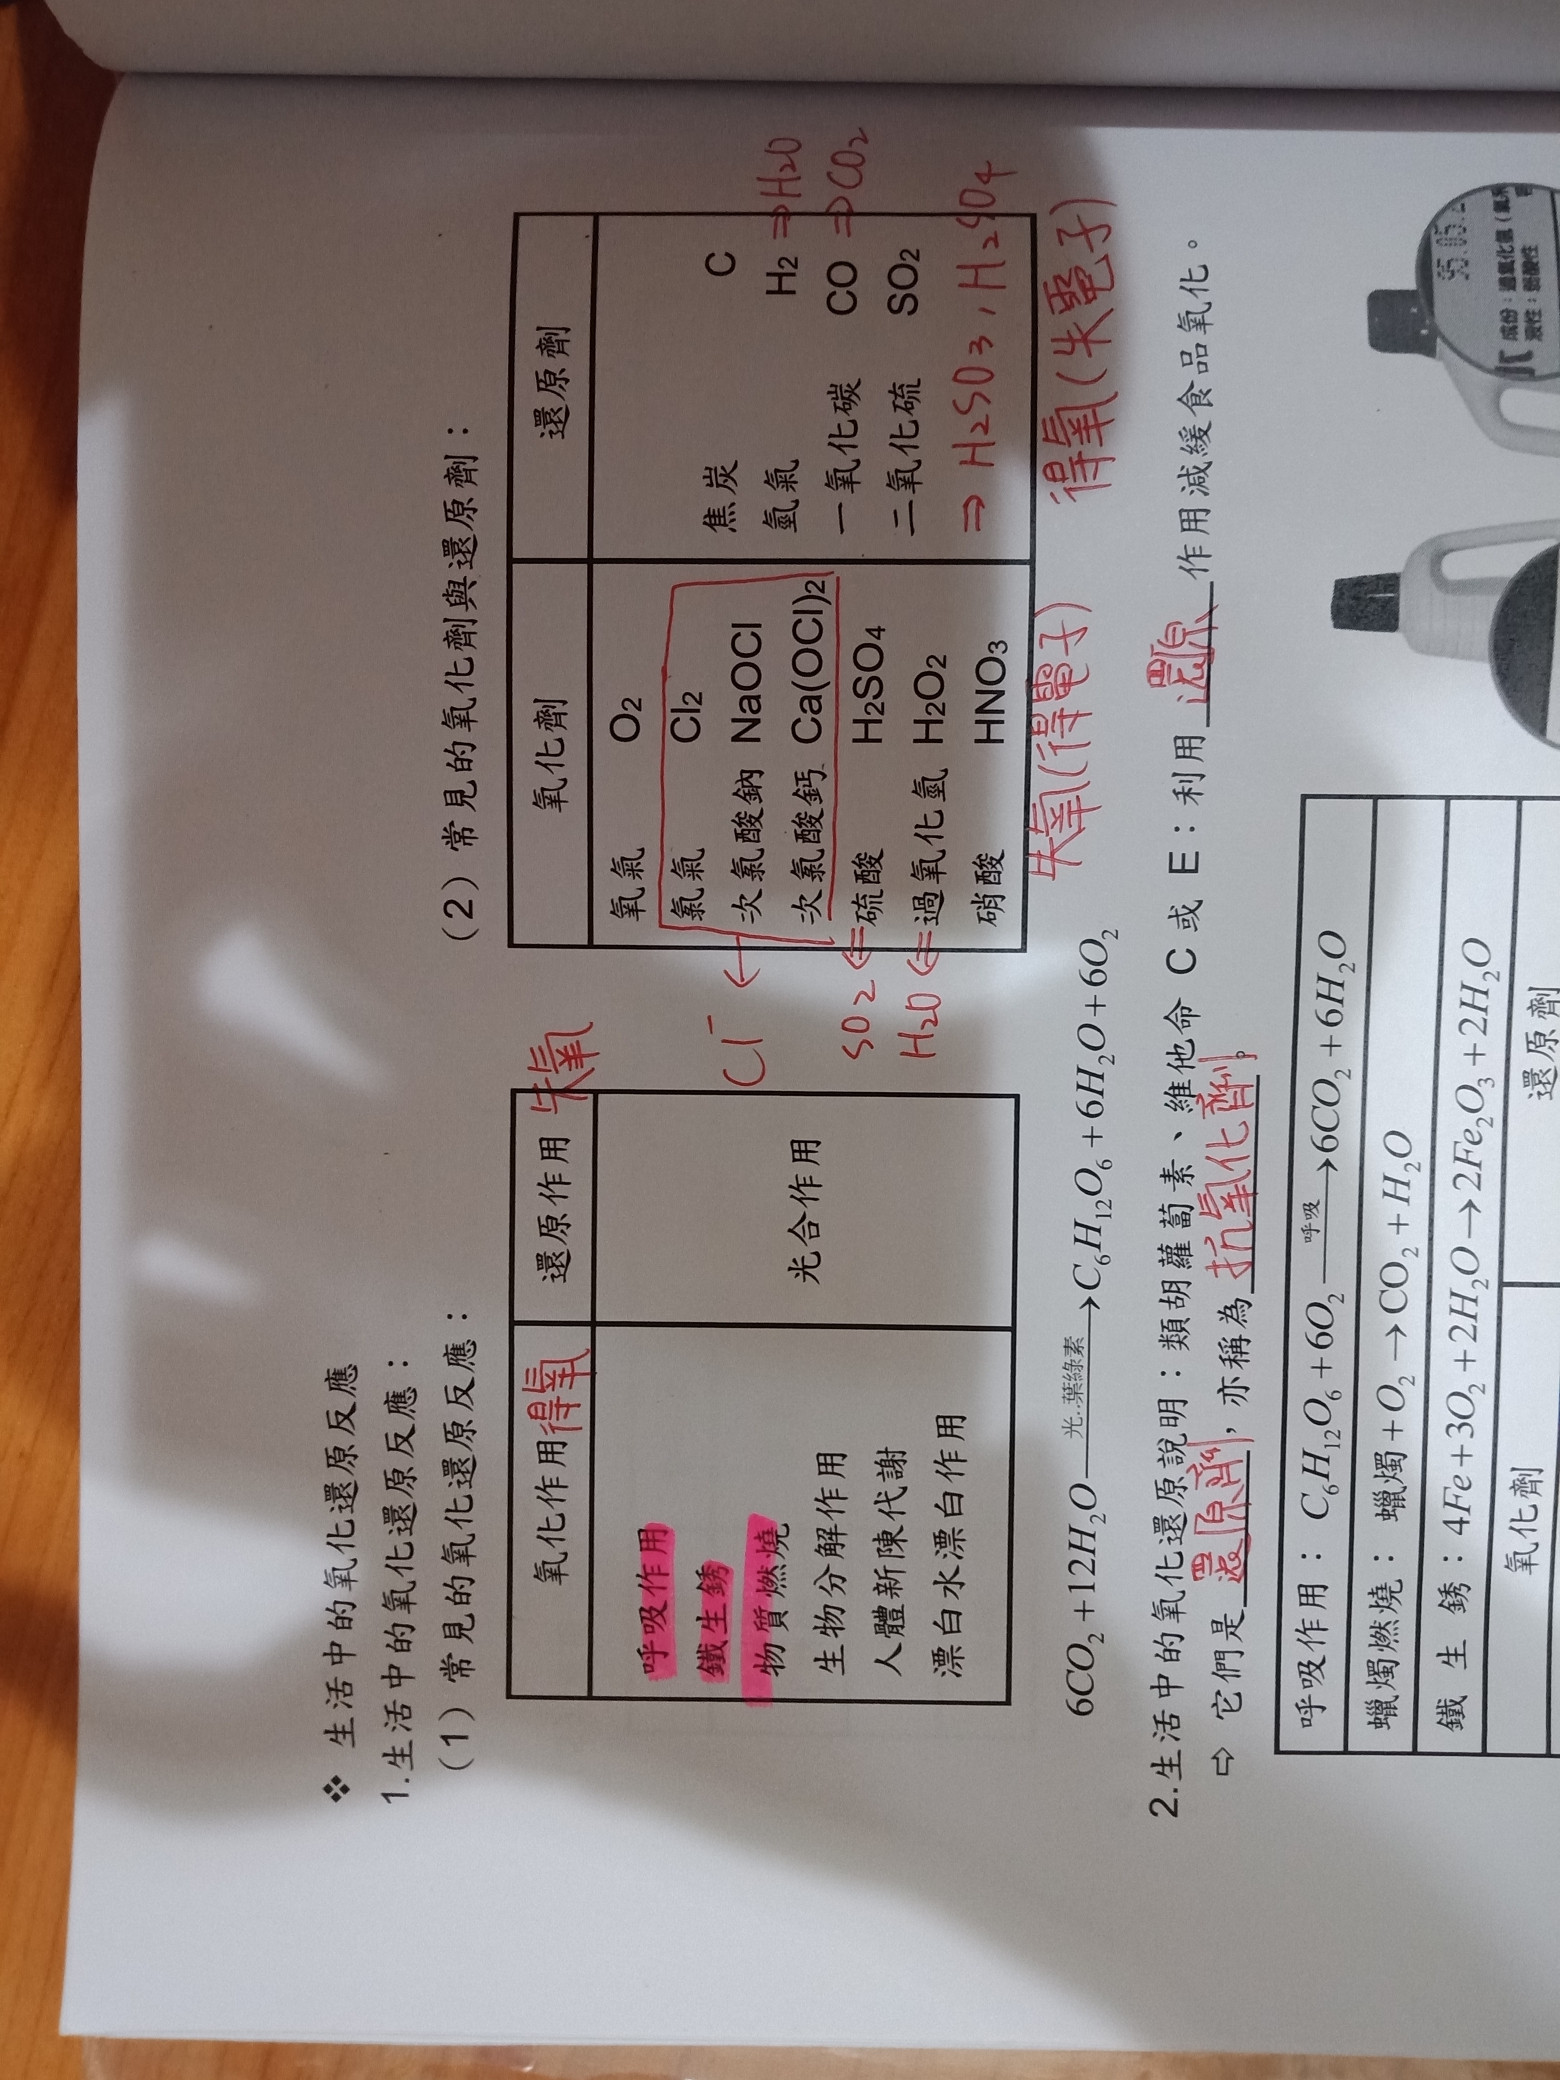 ❖ 生活中的氧化還原反應
1.生活中的氧化還原反應：
（1）常見的氧化還原反應：
氧化作用 得氧
還原作用 失氧
呼吸作用
鐵生銹
物質燃燒
生物分解作用
人體新陳代謝
漂白水漂白作用
光合作用
（2）常見的氧化劑與還原劑：
氧化劑
還原劑
氧氣 O2
氯氣 Cl2
次氯酸鈉 NaOCl
次氯酸鈣 Ca(OCl)2
硫酸 H2SO4
過氧化氫 H2O2
硝酸 HNO3
Cl⁻ ←
SO2 ⇐
H2O ⇐
失氧(得電子)
焦炭 C
氫氣 H2 ⇒H2O
一氧化碳 CO ⇒CO2
二氧化硫 SO2
⇒ H2SO3，H2SO4
得氧(失電子)
6CO2+12H2O 光..葉綠素→C6H12O6+6H2O+6O2
2.生活中的氧化還原說明：類胡蘿蔔素、維他命 C 或 E：利用 還原 作用減緩食品氧化。
⇨ 它們是 還原劑，亦稱為 抗氧化劑。
呼吸作用：C6H12O6+6O2 呼吸→6CO2+6H2O
蠟燭燃燒：蠟燭+O2→CO2+H2O
鐵 生 銹：4Fe+3O2+2H2O→2Fe2O3+2H2O
氧化劑
還原劑
成份：過氧化氫（氧系
液性：弱酸性